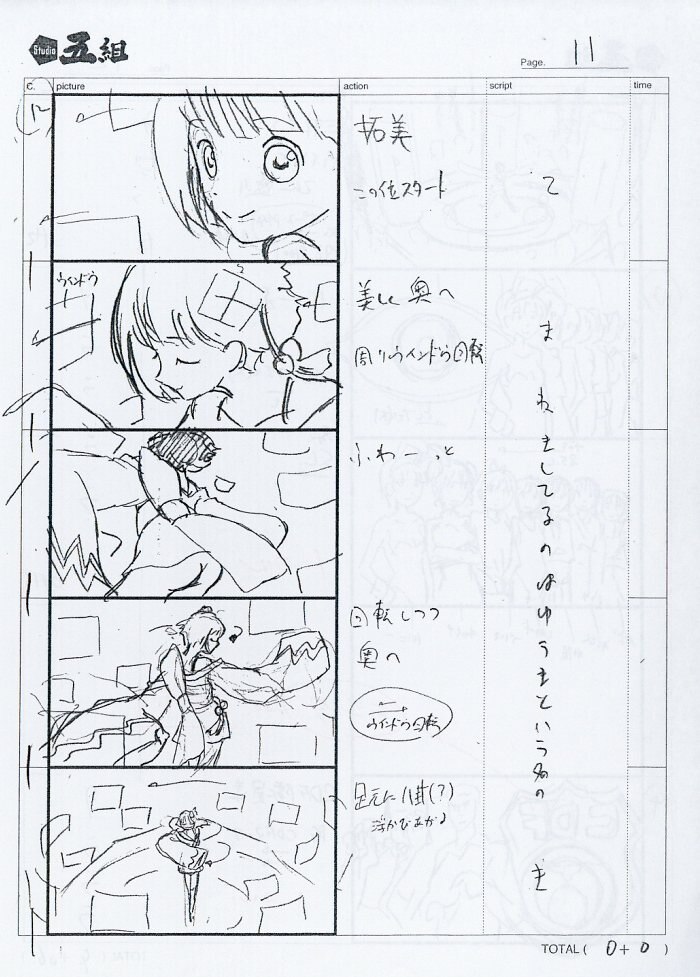 Studio 五組
Page. 11
C. picture action script time
12
拓美
この位スタート
て
ウインドウ
美しく 奥へ
周りウインドウ回転
ま
ふわーっと
わましてるのはゆうきという名の
回転しつつ
奥へ
ウインドウ回転
足元に
(?)
浮かびあがる
き
TOTAL ( 0 + 0 )